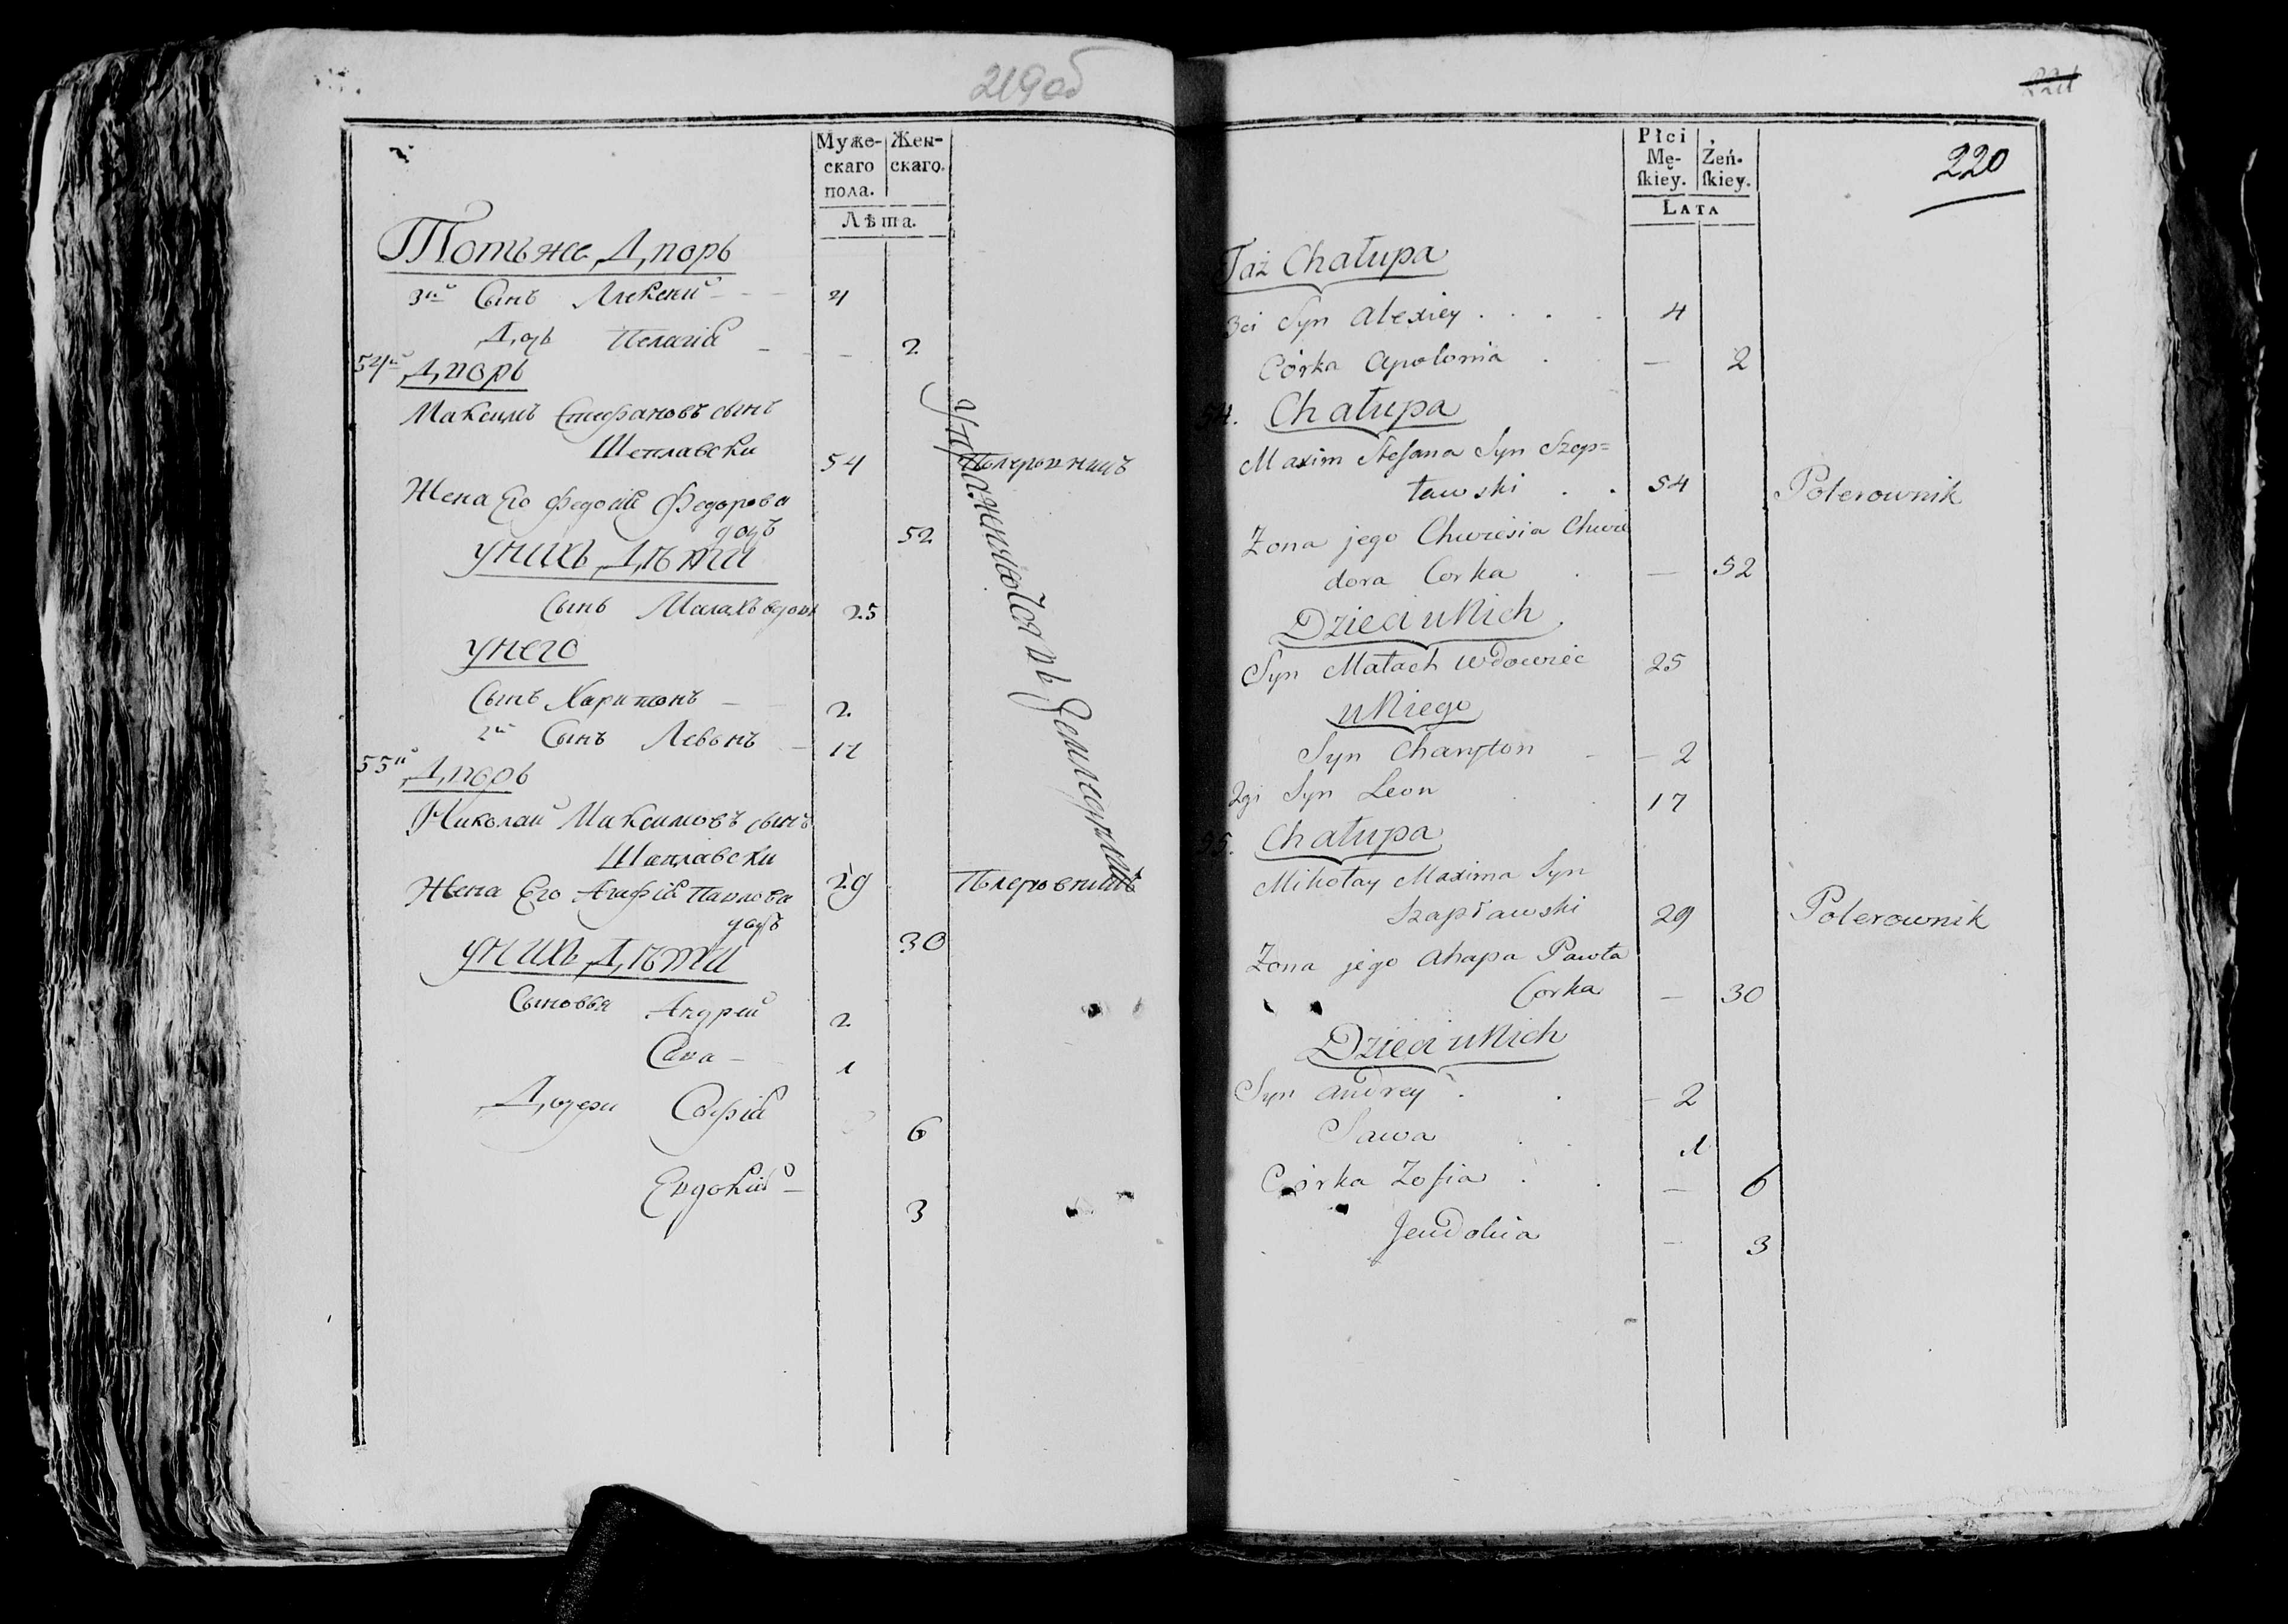 219об
Муже-
скаго
пола.
Жен-
скаго.
Лѣта.
Тотъже Дворъ
3й Сынъ Алексей 4
Дочь Пелагія 2
54й Дворъ
Максимъ Стефановъ сынъ
Шеплавски 54 Полеровникъ
Жена Его Федосія Федорова
дочь 52
Унихъ Дѣти
Сынъ Малахъ вдовъ 25
Унего
Сынъ Харитонъ 2
2й Сынъ Левонъ 17
55й Дворъ
Николай Максимовъ сынъ
Шаплавски 29 Полеровникъ
Жена Его Агафія Павлова
дочь 30
Унихъ Дѣти
Сыновья Андрей 2
Сава 1
Дочери Софія 6
Евдокія 3
Упражняются въ Земледѣліи
220
Płci
Mę-
ſkiey.
Żeń-
ſkiey.
LATA
Taż Chałupa
3ci Syn Alexiey 4
Córka Apolonia 2
54. Chałupa
Maxim Stefana Syn Szep=
ławski 54 Polerownik
Zona jego Chwiesia Chwie
dora Corka 52
Dzieci u Nich
Syn Małach wdowiec 25
u Niego
Syn Charyton 2
2gi Syn Leon 17
55. Chałupa
Mikołay Maxima Syn
Szapławski 29 Polerownik
Zona jego Ahapa Pawła
Corka 30
Dzieci u Nich
Syn Andrey 2
Sawa 1
Córka Zofia 6
Jewdokia 3